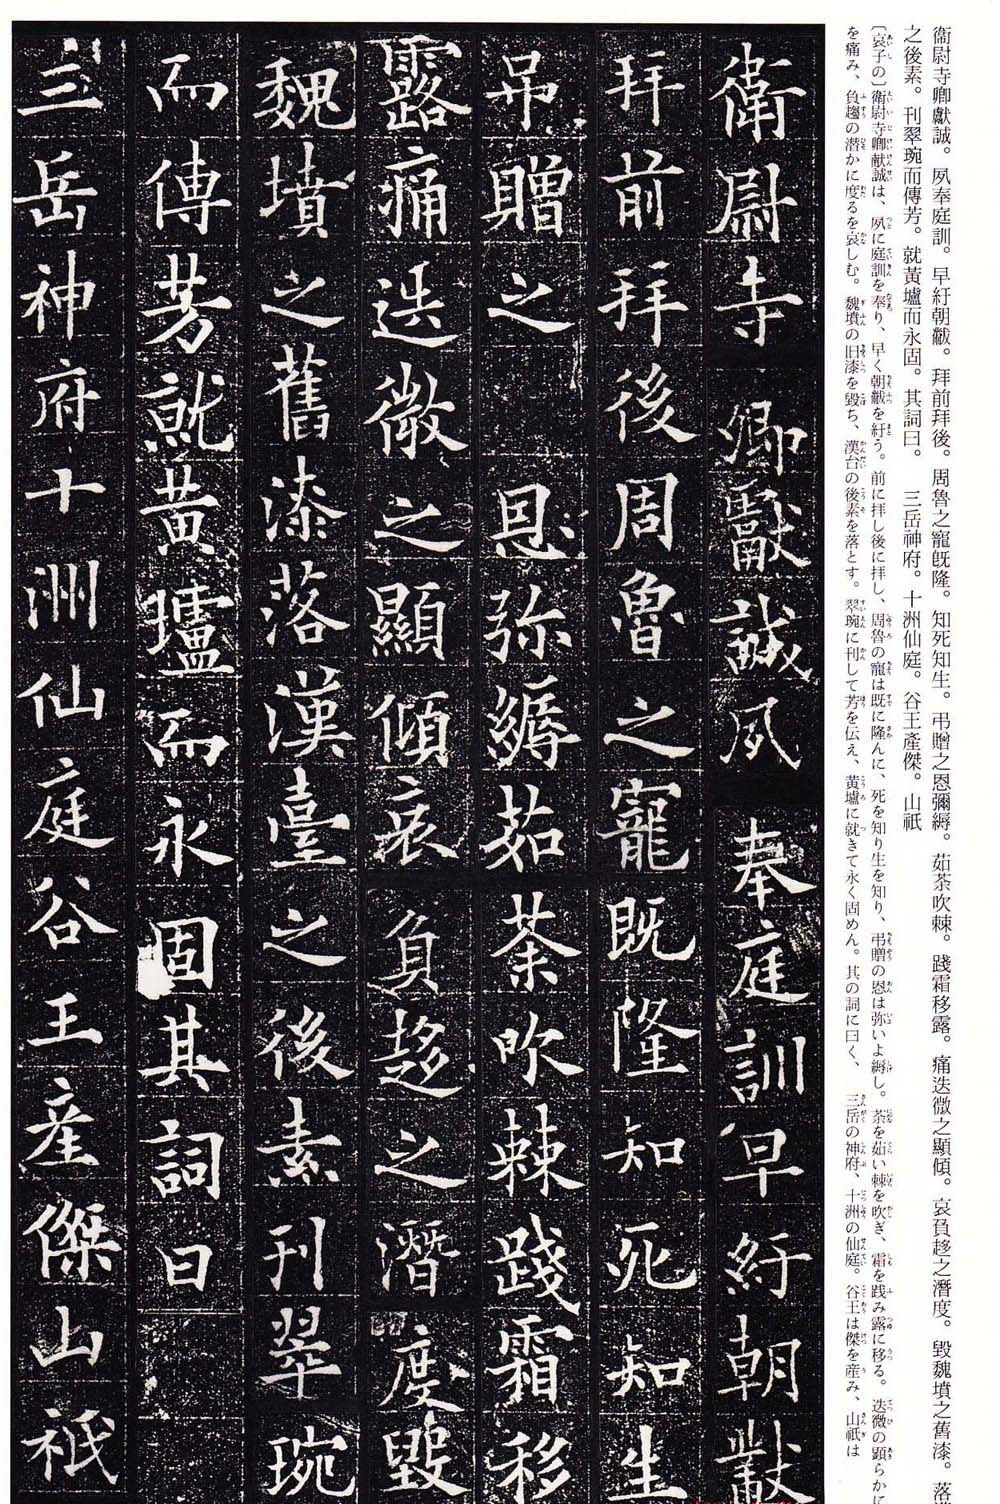 衞尉寺卿獻誠。夙奉庭訓。早紆朝黻。拜前拜後。周魯之寵既隆。知死知生。弔贈之恩彌縟。茹荼吹棘。踐霜移露。痛迭微之顯傾。哀負趍之潛度。毀魏墳之舊漆。落
之後素。刊翠琬而傳芳。就黃壚而永固。其詞曰。　三岳神府。十洲仙庭。谷王產傑。山祇
〔哀子の〕衞尉寺卿献誠は、夙に庭訓を奉り、早く朝黻を紆う。前に拝し後に拝し、周魯の寵は既に隆んに、死を知り生を知り、弔贈の恩は弥いよ縟し。荼を茹い棘を吹ぎ、霜を践み露に移る。迭微の顕らかに
を痛み、負趨の潜かに度るを哀しむ。魏墳の旧漆を毀ち、漢台の後素を落とす。翠琬に刊して芳を伝え、黄壚に就きて永く固めん。其の詞に曰く、　三岳の神府、十洲の仙庭。谷王は傑を産み、山祇は
衛尉寺卿獻誠夙奉庭訓早紆朝黻
拜前拜後周魯之寵既隆知死知生
弔贈之恩弥縟茹荼吹棘踐霜移
露痛迭微之顯傾哀負趍之潛度毀
魏墳之舊漆落漢臺之後素刊翠琬
而傳芳就黃壚而永固其詞曰
三岳神府十洲仙庭谷王産傑山祇